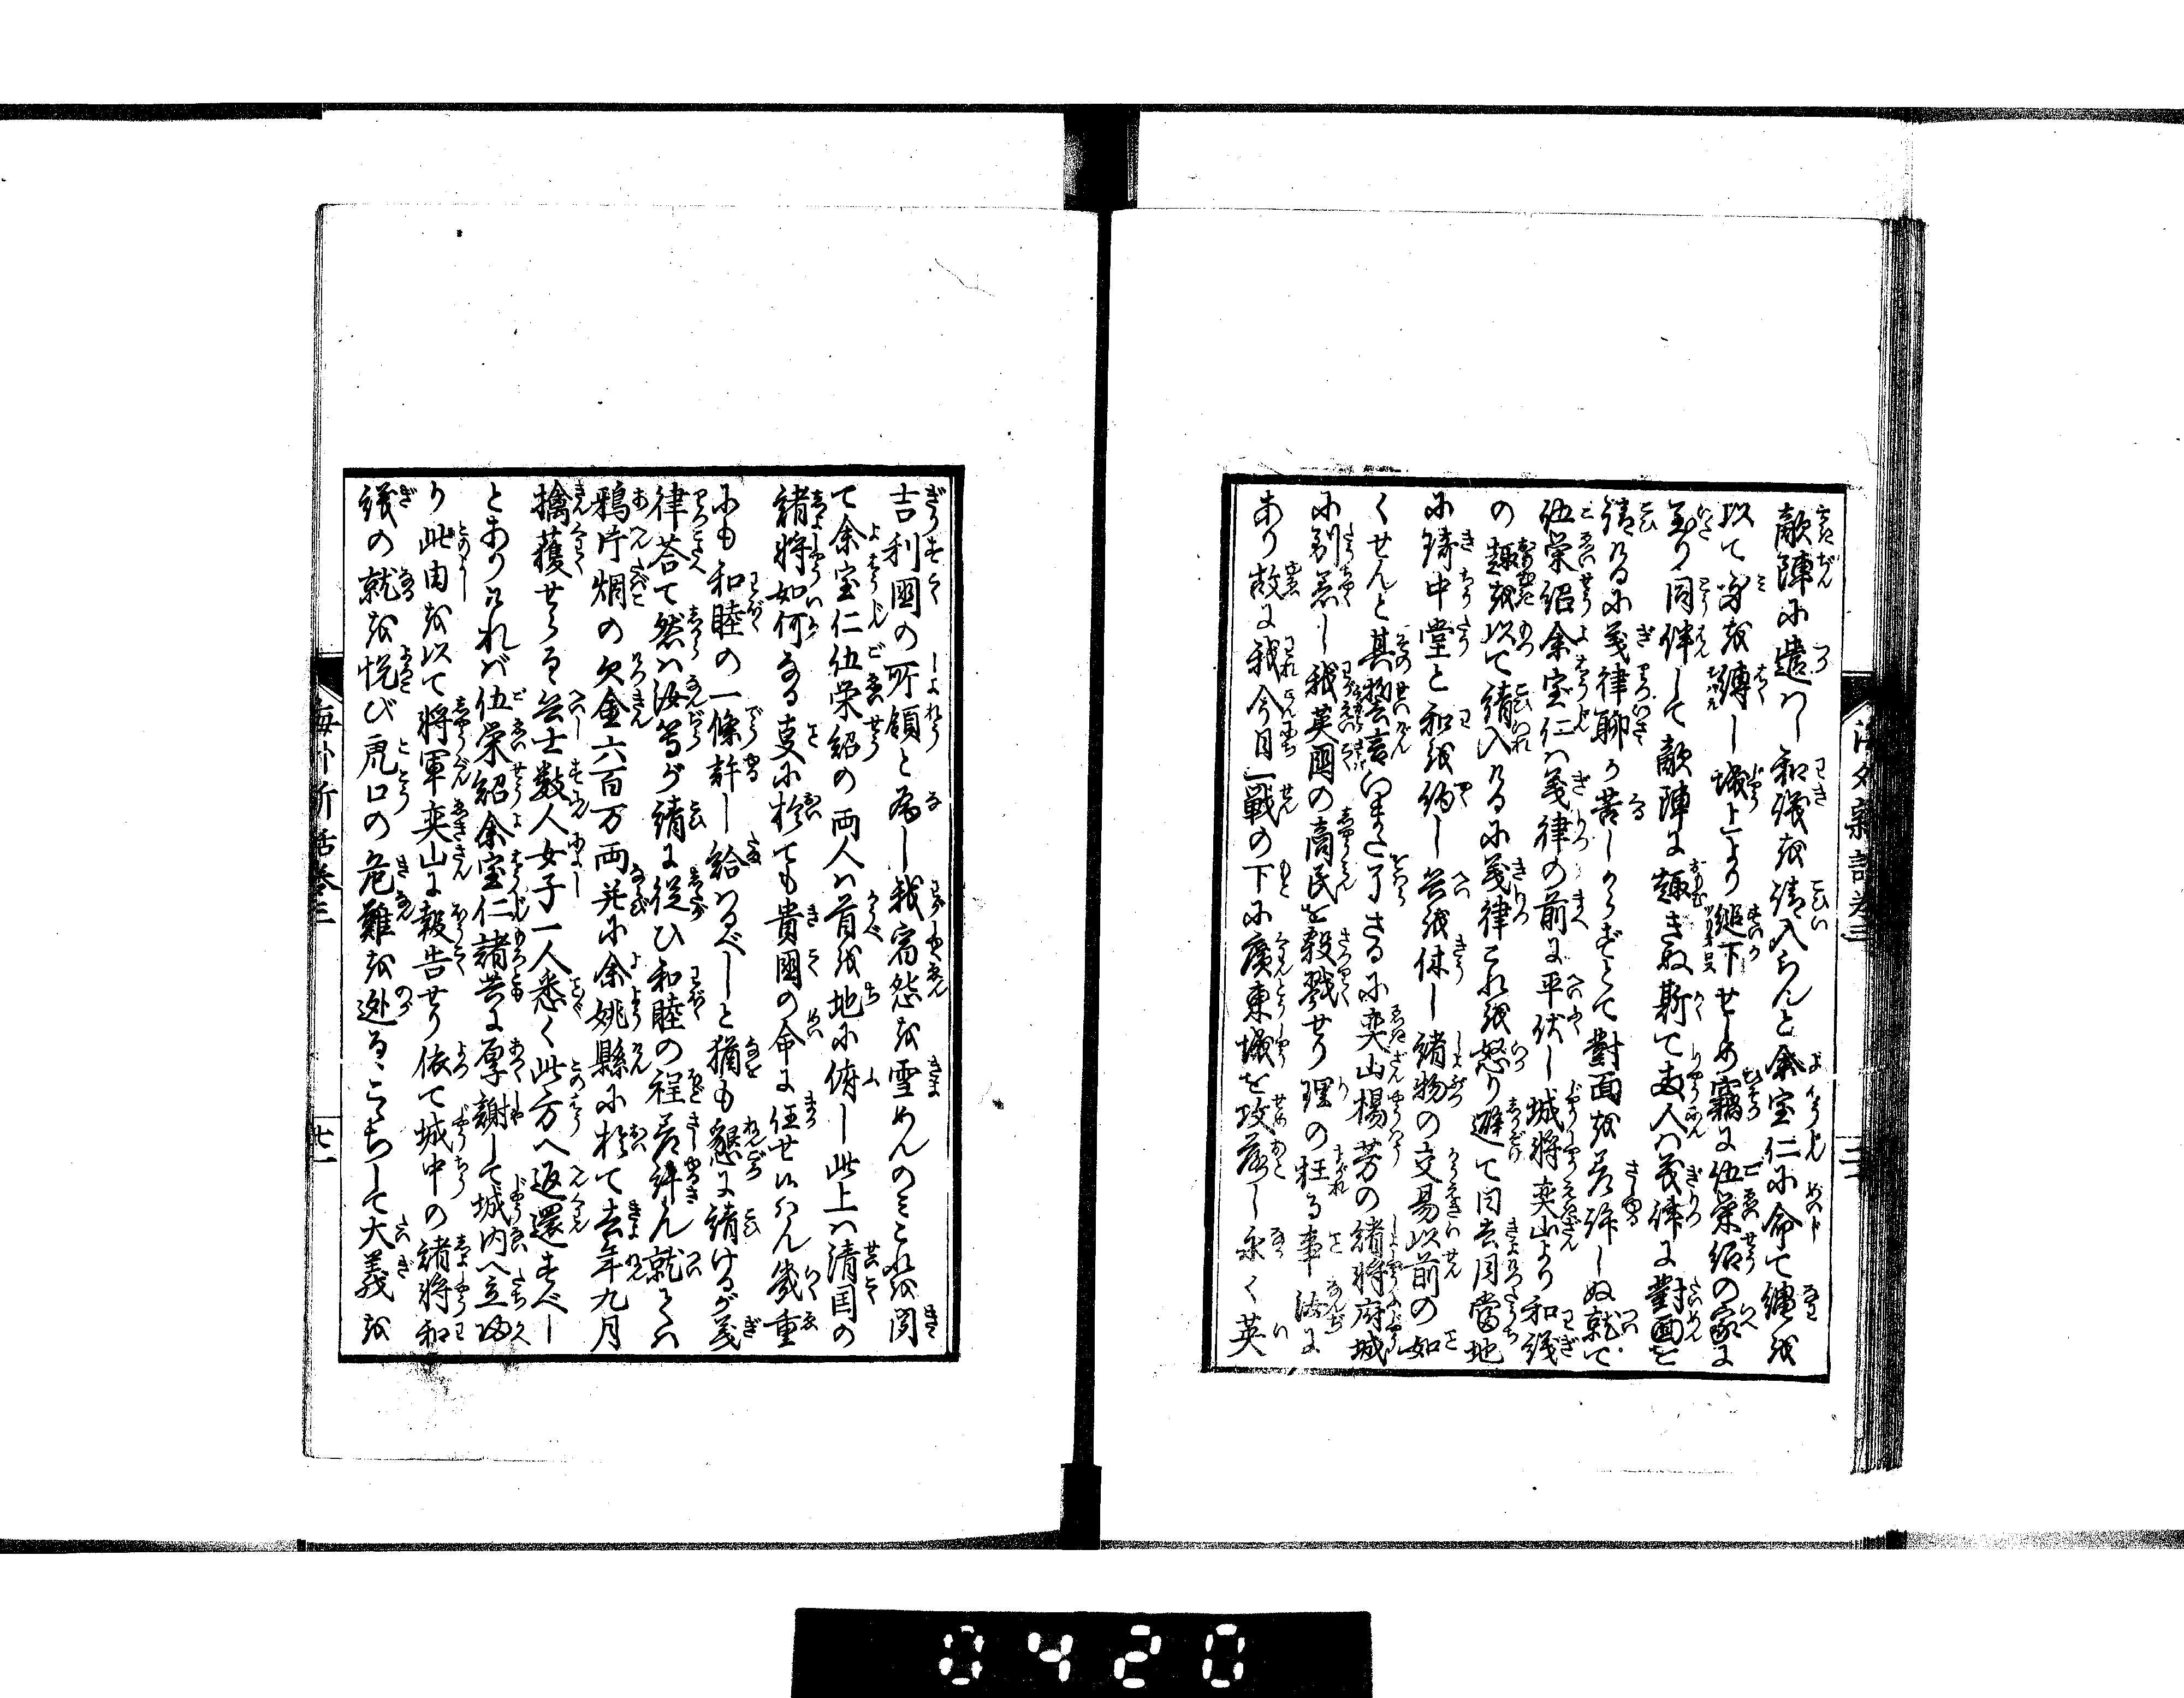 敵陣に遣はし和議を請入らんと余宝仁に命て縄を
以て身を縛し城上より縋下せしめ窃に伍栄紹の家に
至り同伴して敵陣に趣きぬ斯て両人は義律に対面を
請けるに義律聊か苦しからずとて対面を差許しぬ就て
伍栄紹余宝仁は義律の前に平伏し城将奕山より和議
の趣を以て請入けるに義律これを怒り避て曰去月当地
に於中堂と和を約し兵を休し諸物の交易以前の如
くせんと其誓言いまだ了さるに奕山楊芳の諸将府城
に到着し我英国の商民を殺戮せり理の枉る事法に
あり故に我今日一戦の下に広東城を攻落し永く英
海外新話巻三
吉利国の所領と為し我宿怨を雪めんのみこれを聞
て余宝仁伍栄紹の両人は首を地に俯し此上は清国の
諸将如何なる事に於ても貴国の命に任せ候はん幾重
にも和睦の一條許し給はるべしと猶も懇に請けるが義
律答て然は汝等が請に従ひ和睦の程差許ん就ては
鴉片烟の欠金六百万両并に余姚縣に於て去年九月
擒獲せらる兵士数人女子一人悉く此方へ返還すべし
とありければ伍栄紹余宝仁諸共に厚謝して城内へ立帰
り此由を以て将軍奕山に報告せり依て城中の諸将和
議の就を悦び虎口の危難を遁るこゝちして大義を
海外新話巻三
廿一
0420